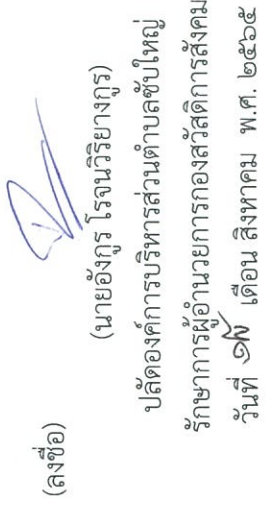 (ลงชื่อ)
(นายอังกูร โรจนวิริยางกูร)
ปลัดองค์การบริหารส่วนตำบลซับใหญ่
รักษาการผู้อำนวยการกองสวัสดิการสังคม
วันที่ เดือน สิงหาคม พ.ศ. ๒๕๖๕